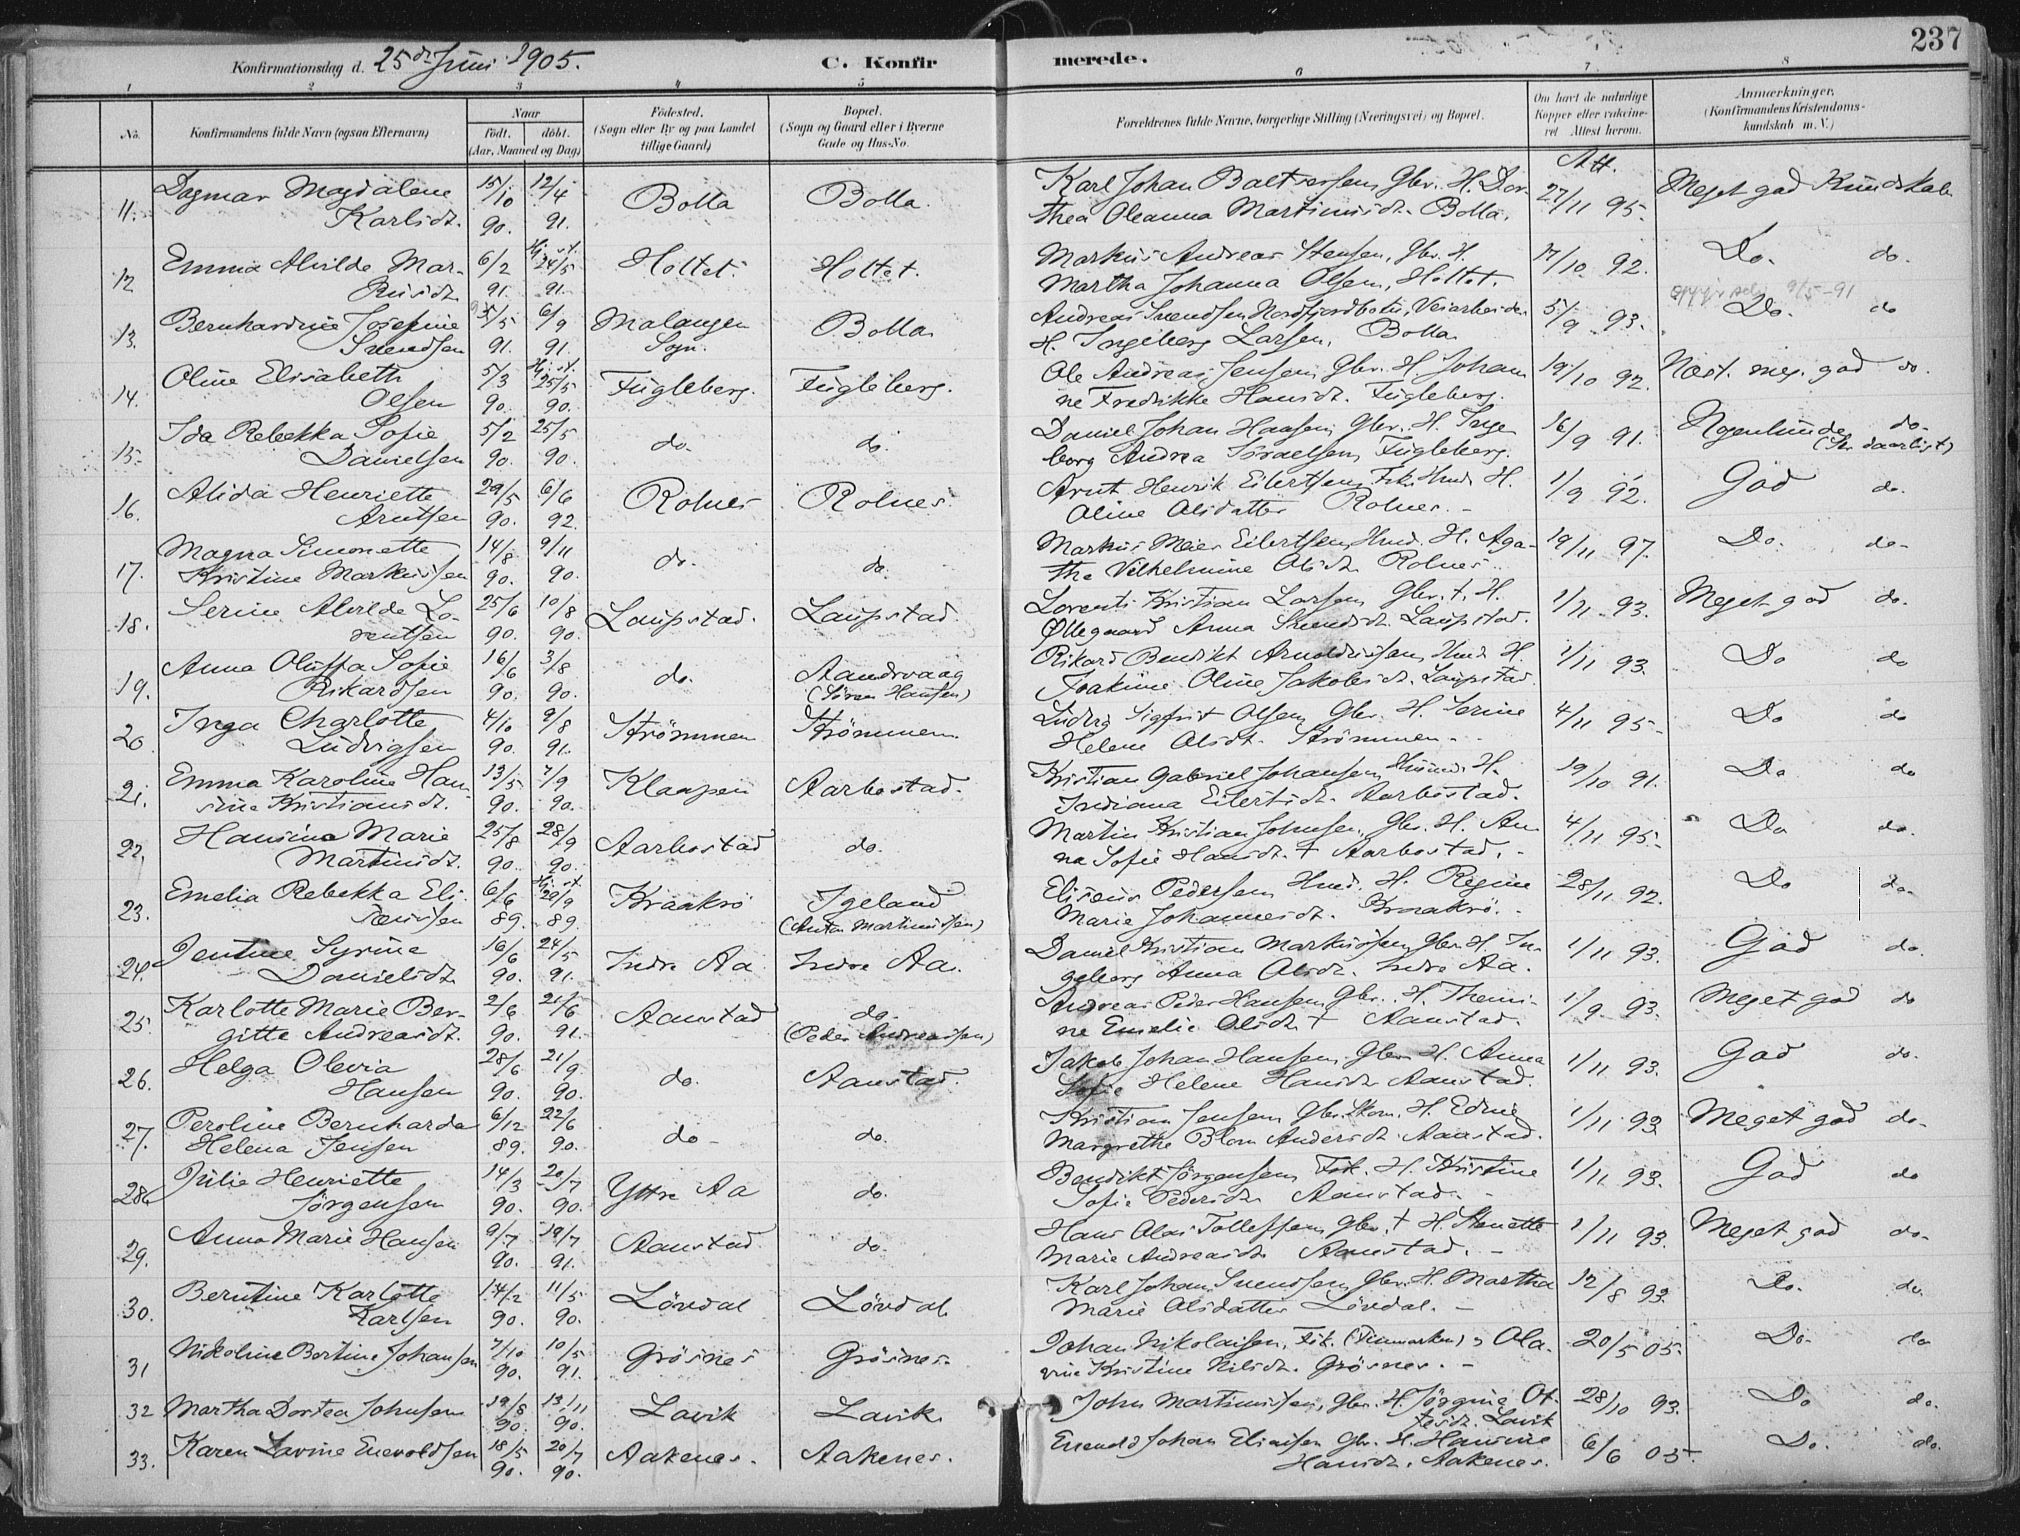 237
Konfirmationsdag d. 25de Juni 1905. C. Konfirmerede.
1 2 3 4 5 6 7 8
No. Konfirmandens fulde Navn (ogsaa Efternavn) Naar født. døbt. (Aar, Maaned og Dag) Fødested. (Sogn eller By og paa Landet tillige Gaard) Bopæl. (Sogn og Gaard eller i Byerne Gade og Hus-No. Forældrenes fulde Navne, borgerlige Stilling (Næringsvei) og Bopæl. Om havt de naturlige Kopper eller vakcineret. Attest herom. Anmærkninger. (Konfirmandens Kristendomskundskab m. V.)
Att.
11. Dagmar Magdalene 15/10 12/4 Bolla Bolla. Karl Johan Baltsersen, Gbr. H. Dor- 27/11 95. Meget god Kundskab
Karlsdt. 90. 91. thea Oleanna Martinusdt. Bolla.
12 Emma Alvilde Mar- 6/2 Hj. st. 24/5 Holtet. Holtet. Markus Andreas Stensen, Gbr. H. 17/10 92. Do. do.
kusdt. 91. 91. Martha Johanna Olsen, Holtet.
9/5-91
13. Bernhardine Josefine 5/5 6/9 Malangen Bolla Andreas Svendsen Nordfjordbotn, Veiarbeider 5/9 93. Do. do
Svendsen 91. 91. Sogn. H. Ingeborg Larsen, Bolla
14. Oline Elisabeth 5/3 Hj. st. 25/5 Fugleberg. Fugleberg. Ole Andreas Jensen, Gbr. H. Johan 19/10 92. Næst. meg. god do.
Olsen 90. 90. ne Fredrikke Hansdt. Fugleberg.
15. Ida Rebekka Sofie 5/2 25/5 do. do. Daniel Johan Hansen, Gbr. H. Inge 16/9 91. Nogenlunde do.
Danielsen 90. 90. borg Andrea Israelsen, Fugleberg. (Skr. daarligt)
16. Alida Henriette 29/5 6/6 Rolnes Rolnes. Arnt Henrik Eilertsen, Fsk. Hmd. H. 1/9 92. God do.
Arntsen 90. 92. Oline Olsdatter Rolnes. -
17. Magna Simonette 14/8 9/11 do. do. Markus Meier Eilertsen, Hmd. H. Aga- 19/11 97. Do. do.
Kristine Markussen 90. 90. the Vilhelmine Olsdt. Rolnes.
18. Serine Alvilde Lo- 25/6 10/8 Laupstad. Laupstad. Lorents Kristian Larsen, Gbr. †. H. 1/11 93. Meget god do.
rentsen 90. 90. Øllegaard Anna Svendsdt. Laupstad.
19. Anna Oluffa Sofie 16/6 3/8 do. Aandsvaag Rikard Benedikt Arnoldussen, Hmd. H. 1/11 93. Do do
Rikardsen 90. 90. (Søren Hansen) Joakime Oline Jakobsdt. Laupstad
20. Inga Charlotte 4/10 9/8 Strömmen Strömmen. Ludvig Sigfrit Olsen, Gbr. H. Serine 4/11 95. Do do
Ludvigsen 90. 91. Helene Olsdt. Strömmen.
21. Emma Karoline Han- 13/5 7/9 Klaapen Aarbostad. Kristian Gabriel Johansen, Husmd. H. 19/10 91. Do do
sine Kristiansdt. 90. 90. Indiana Eilertsdt. Aarbostad.
22. Hansina Marie 25/8 28/9 Aarbostad do. Martin Kristian Johnsen, Gbr. H. An 4/11 95. Do do.
Martinsdt. 90. 90. na Sofie Hansdt. † Aarbostad.
23. Emelia Rebekka Eli- 6/6 Hj. st. 29/9 Kraakrö Igeland Eliseus Pedersen Hmd. H. Regine 28/11 92. Do do.
seussen 89. 89. (Anton Martinussen) Marie Johannesdt. Kraakrö.
24. Jentine Syrine 16/6 24/5 Indre Aa Indre Aa. Daniel Kristian Markussen, Gbr. H. In- 1/11 93. God do.
Danielsdt. 90. 91. geborg Anna Olsdt. Indre Aa.
25. Karlotte Marie Ber- 2/6 21/6 Aanstad do. Andreas Peder Hansen, Gbr. H. Themi- 1/9 93. Meget god do
gitte Andreasdt. 90. 91. (Peder Andreassen) ne Emelie Olsdt. † Aanstad.
26. Helga Olevia 28/6 21/9 do. Aanstad. Jakob Johan Hansen, Gbr. H. Anna 1/11 93. God do.
Hansen 90. 90. Sofie Helene Hansdt. Aanstad.
27. Peroline Bernharda 6/12 22/6 do. do. Kristian Jensen, Gbr. Skom. H. Edine 1/11 93 Meget god do.
Helena Jensen 89. 90. Margrethe Blom Andersdt. Aanstad.
28. Julie Henriette 14/3 20/7 Yttre Aa do. Benedikt Jörgensen, Fsk. H. Kristine 1/11 93. God do
Jörgensen 90. 90. Sofie Pedersdt. Aanstad.
29. Anna Marie Hansen 9/7 19/7 Aanstad do. Hans Olai Tollefsen, Gbr. † H. Hanette 1/11 93. Meget god do.
90. 91. Marie Andreasdt. Aanstad. -
30. Berntine Karlotte 14/2 11/5 Lövdal Lövdal. Karl Johan Svendsen, Gbr. H. Martha 12/8 93. Do. do.
Karlsen 90. 90. Marie Olsdatter Lövdal. -
31 Nikoline Bertine Johansen 7/10 10/5 Grösnes Grösnes. Johan Nikolaisen, Fsk. (Finmarken) og Ola- 20/5 05. Do. do
90. 91. vine Kristine Nilsdt. Grösnes. -
32 Martha Dortea Johnsen 19/8 13/11 Lavik Lavik. John Martinussen, Gbr. H. Jörgine Ot- 28/10 93. Do do.
90. 90. tesdt. Lavik
33. Karen Lavine Enevoldsen 18/5 20/7 Aakenes. Aakenes. Enevold Johan Eliassen Gbr. H. Hansine 6/6 05. Do. do.
90. 90. Hansdt. Aakenes.